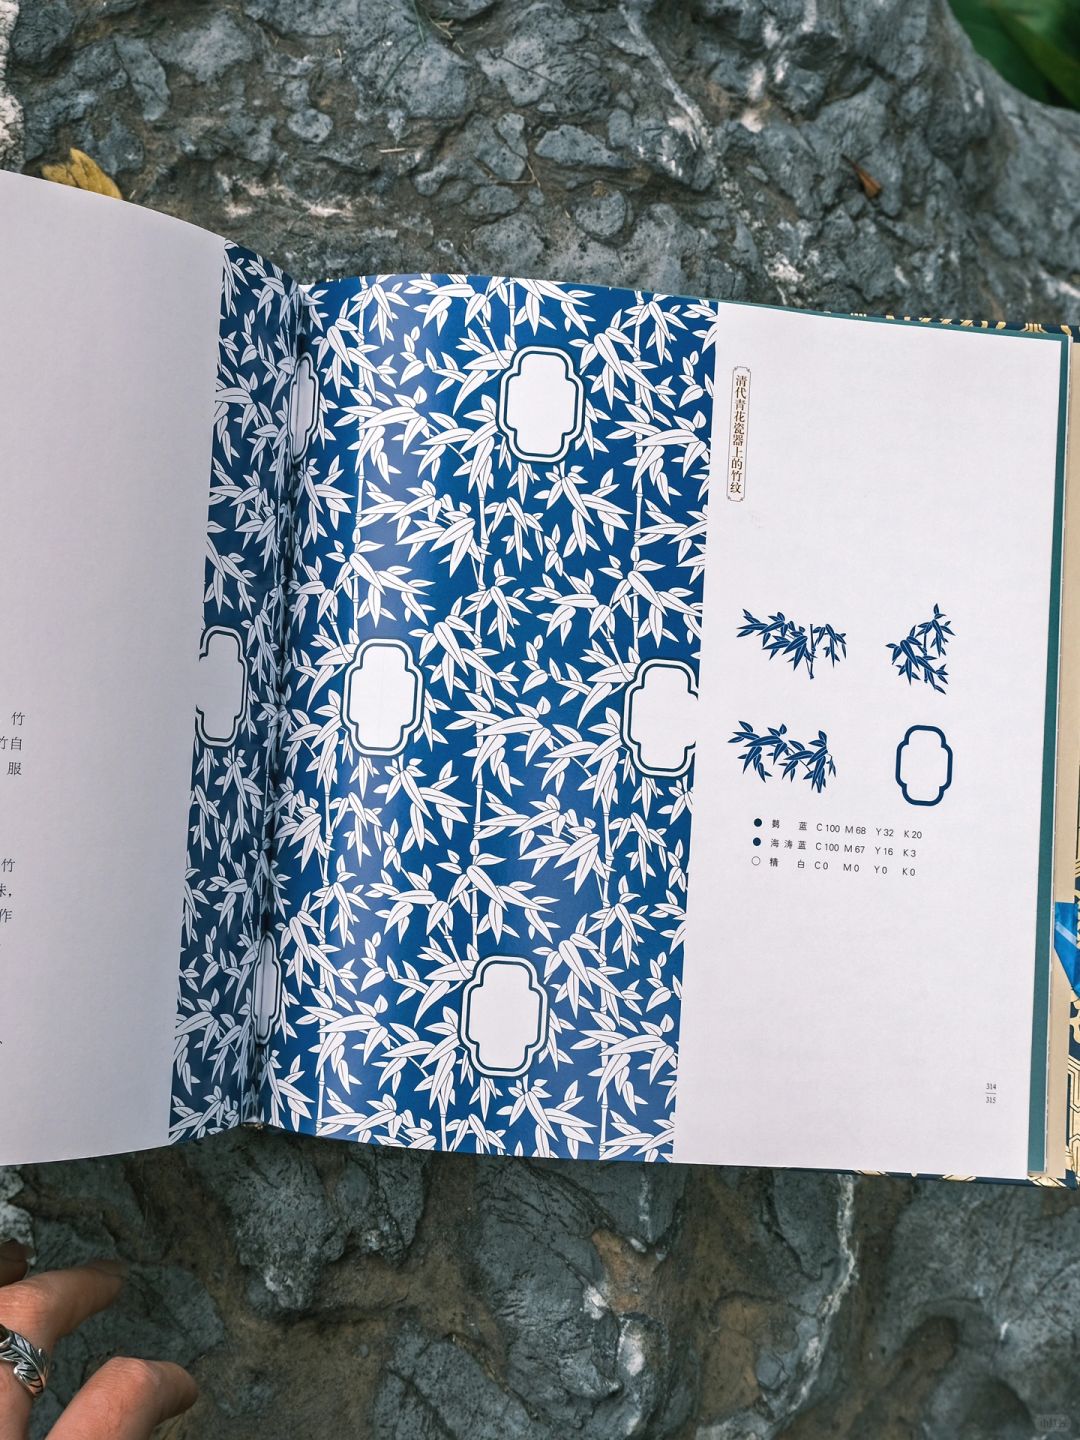 竹
竹自
服
竹
味，
作
、
清代青花瓷器上的竹纹
鹩 蓝 C100 M68 Y32 K20
海涛蓝 C100 M67 Y16 K3
精 白 C0 M0 Y0 K0
314
315